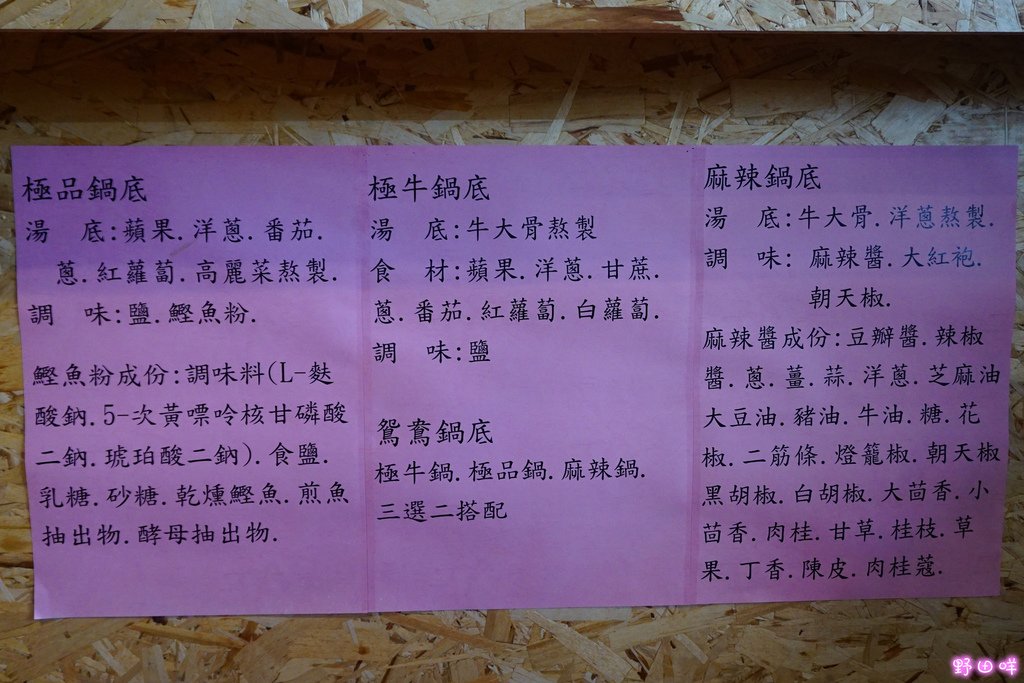 極品鍋底
湯　底:蘋果.洋蔥.番茄.
蔥.紅蘿蔔.高麗菜熬製.
調　味:鹽.鰹魚粉.
鰹魚粉成份:調味料(L-麩
酸鈉.5-次黃嘌呤核甘磷酸
二鈉.琥珀酸二鈉).食鹽.
乳糖.砂糖.乾燻鰹魚.煎魚
抽出物.酵母抽出物.
極牛鍋底
湯　底:牛大骨熬製
食　材:蘋果.洋蔥.甘蔗.
蔥.番茄.紅蘿蔔.白蘿蔔.
調　味:鹽
鴛鴦鍋底
極牛鍋.極品鍋.麻辣鍋.
三選二搭配
麻辣鍋底
湯　底:牛大骨.洋蔥熬製.
調　味: 麻辣醬.大紅袍.
朝天椒.
麻辣醬成份:豆瓣醬.辣椒
醬.蔥.薑.蒜.洋蔥.芝麻油
大豆油.豬油.牛油.糖.花
椒.二筋條.燈籠椒.朝天椒
黑胡椒.白胡椒.大茴香.小
茴香.肉桂.甘草.桂枝.草
果.丁香.陳皮.肉桂蔻.
野田咩